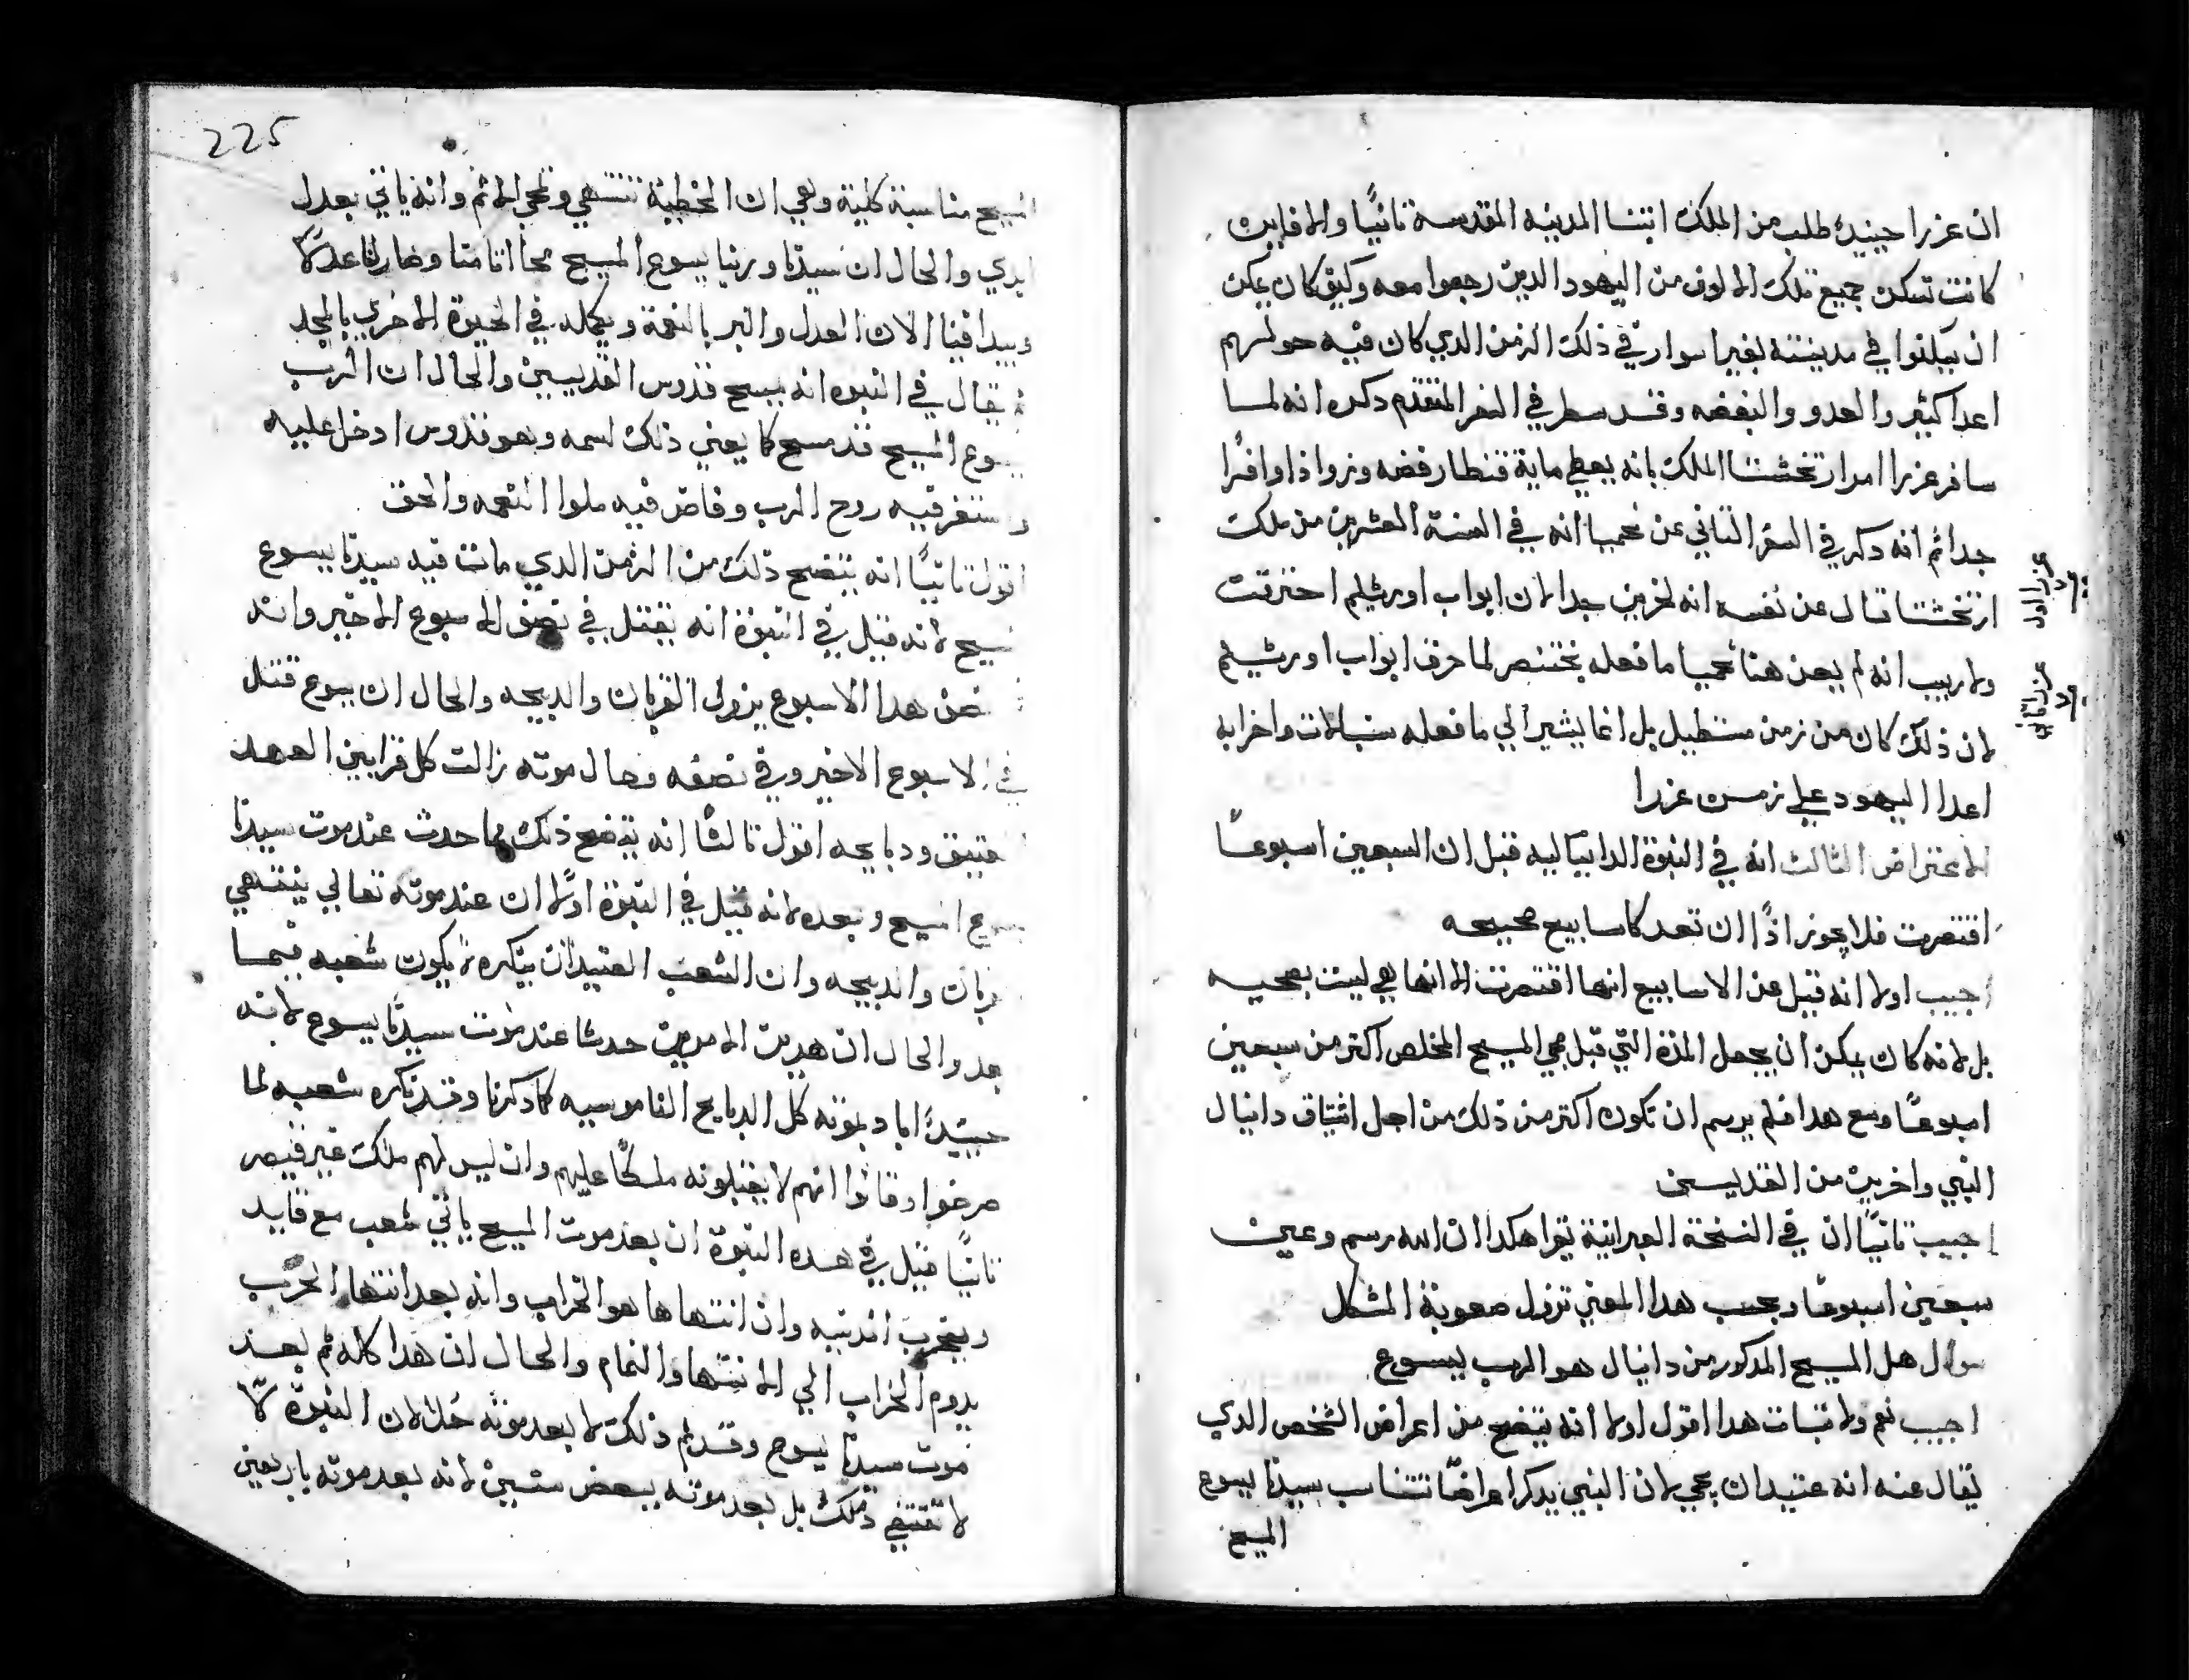 ان عزرا حينيدٍ طلب من الملك ابتنا المدينه المقدسة ثانيًا والا فاين
كانت تسكن جميع تلك الالوف من اليهود الدين رجعوا معه وكيف كان يمكن
ان يمكنوا في مدينته بغير اسوار في ذلك الزمن الدي كان فيه حولهم
اعدا كثير والعدو والبغضه وقد سطر في السفر المتقدم دكره انه لما
سافر عزرا امر ارتخشتا الملك بانه يعطي ماية قنطار فضه وزواذا وافرًا
جدا ثم انه دكر في السفر التاني عن نحميا انه في السنة العشرين من ملك
ارتخشتا قال عن نفسه انه لحزين جدا لان ابواب اورشليم احترقت
ولا ريب انه لم يعن هنا نحميا ما فعله بختنصر لما حرق ابواب اورشليم
لان ذلك كان من زمن مستطيل بل انما يشير الي ما فعله سنبالات واخرابه
اعدا اليهود علي زمن عزرا
الاعتراض الثالث انه في النبوة الدانياليه قيل ان السبعين اسبوعًا
اقتصرت فلا يجوز اذًا ان تعد كاسابيع صحيحه
اجيب اولا انه قيل عن الاسابيع انها اقتصرت لا انها هي ليست بصحيه
بل لانه كان يمكن ان يجعل المدة التي قبل مجي المسيح المخلص اكتر من سبعين
اسبوعًا ومع هدا فلم يرسم ان تكون اكتر من ذلك من اجل اشتياق دانيال
النبي واخرين من القديسين
اجيب ثانيًا ان في النسخة العبرانية تقرا هكدا ان الله رسم وعين
سبعين اسبوعًا وبحسب هدا المعني تزول صعوبة المشكل
سوال هل المسيح المدكور من دانيال هو الرب يسوع
اجيب نعم ولاثبات هدا اقول اولا انه يتضح من اعراض الشخص الدي
يقال عنه انه عتيد ان يجي لان النبي يدكر اعراضًا تتناسب سيدنا يسوع
المسيح
عزرا اول
عزرا ثانيه
225
المسيح مناسبة كلية وهي ان الخطية تنتهي وتمحي الاثم وانه ياتي بعدل
ابدي والحال ان سيدنا وربنا يسوع المسيح محا اثامنا وصار لنا عدلاً
ويبدا فينا الان العدل والبر بالنعمة ويكمله في الحيوة الاخري بالمجد
ثم يقال في النبوه انه يمسح قدوس القديسين والحال ان الرب
يسوع المسيح قد مسح كما يعني ذلك اسمه وهو قدوس ادخل عليه
واستقر فيه روح الرب وفاض فيه ملوا النعمه والحق
اقول ثانيًا انه يتضح ذلك من الزمن الدي مات فيه سيدنا يسوع
المسيح لانه قيل في النبوة انه يقتل في نصف الاسبوع الاخير وانه
في نصف هدا الاسبوع يزول القربان والدبيحه والحال ان يسوع قتل
في الاسبوع الاخير وفي نصفه فحال موته زالت كل قرابين العهد
العتيق ودبايحه اقول ثالثًا انه يتضح ذلك مما حدث عند موت سيدنا
يسوع المسيح وبعده لانه قيل في النبوة اولا ان عند موته تعالي ينتهي
القربان والدبيحه وان الشعب العتيد ان ينكره لا يكون شعبه فيما
بعد والحال ان هدين الامرين حدثا عند موت سيدنا يسوع لانه
حينيدٍ اباد بموته كل الدبايح الناموسيه كما دكرنا وقد نكره شعبه لما
صرخوا وقالوا انهم لا يقبلونه ملكًا عليهم وان ليس لهم ملك غير قيصر
ثانيًا قيل في هده النبوة ان بعد موت المسيح ياتي شعب مع قايد
ويخرب المدينه وان انتهاها هو الخراب وانه بعد انتها الحرب
يدوم الخراب الي الانتها والتمام والحال ان هدا كله تم بعد
موت سيدنا يسوع وقد تم ذلك لا بعد موته حالا لان النبوة لا
لا تقتضي ذلك بل بعد موته ببعض سنين لانه بعد موته باربعين